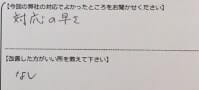 【今回の弊社の対応でよかったところをお聞かせください】
対応の早さ
【改善した方がいい所を教えて下さい】
なし